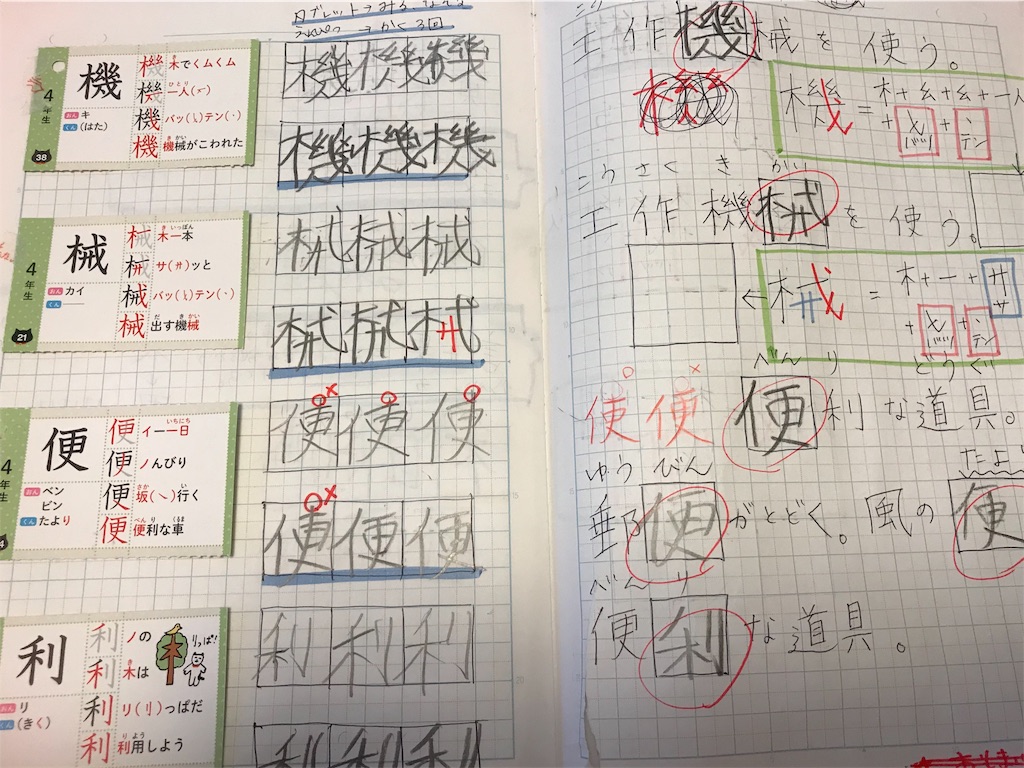 タブレット→みる、なぞる
えんぴつ→かく3回
4年生
機
おん キ
くん (はた)
38
機 木でくムくム
機 一人(ノ一)
ひとり
機 バッ(乀)テン(丶)
機 機械がこわれた
きかい
機 機 機
機 機 機
4年生
械
おん カイ
くん ―
21
械 木一本
きいっぽん
械 サ(廾)ッと
械 バッ(乀)テン(丶)
械 出す機械
だ きかい
械 械 械
械 械 械
4年生
便
おん ベン
ビン
くん たより
便 イ一一日
いちにち
便 ノんびり
便 坂(乀)行く
さか い
便 便利な車
べんり くるま
便 便 便
便 便 便
利
おん リ
くん (きく)
利 ノの
利 木は
き
利 リ(刂)っぱだ
利 利用しよう
りよう
りっぱ!
利 利 利
利 利 利
工作機械を使う。
機 機
機 = 木+幺+幺+一人
+ バツ + テン
こうさくきかい
工作機械を使う。
械 = 木+一+廾
サ
+ バツ + テン
べんり どうぐ
便 便 便利な道具。
ゆうびん たより
郵便がとどく。風の便
べんり
便利な道具。